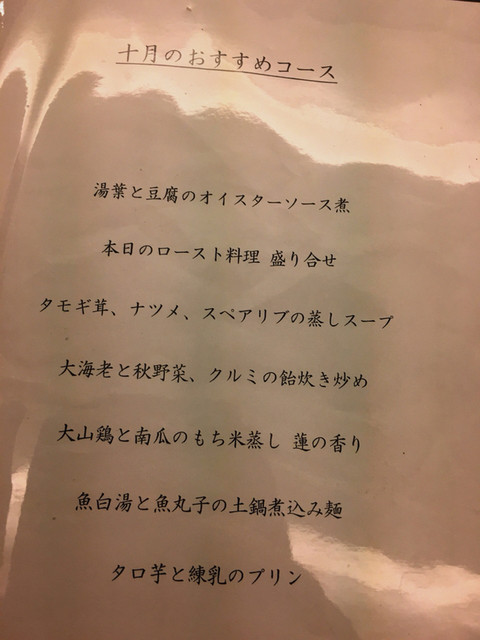 十月のおすすめコース
湯葉と豆腐のオイスターソース煮
本日のロースト料理 盛り合せ
タモギ茸、ナツメ、スペアリブの蒸しスープ
大海老と秋野菜、クルミの飴炊き炒め
大山鶏と南瓜のもち米蒸し 蓮の香り
魚白湯と魚丸子の土鍋煮込み麺
タロ芋と練乳のプリン